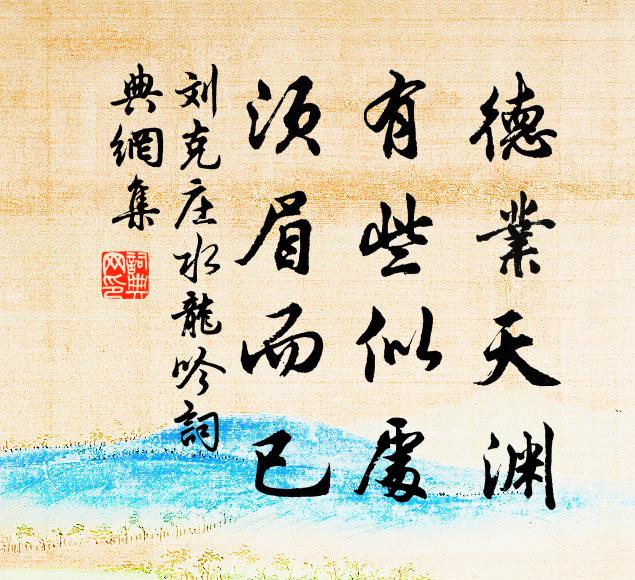 德業天渊
有些似處
須眉而已
刘克庄水龍吟詞
典網集
詞典網印